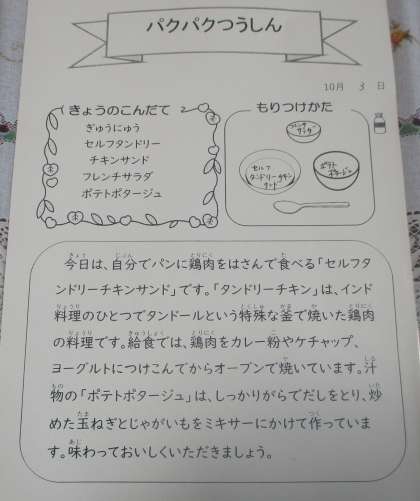 パクパクつうしん
10月 3 日
きょうのこんだて
ぎゅうにゅう
セルフタンドリー
チキンサンド
フレンチサラダ
ポテトポタージュ
もりつけかた
フレンチ
サラダ
セルフ
タンドリーチキン
サンド
ポテト
ポタージュ
今日は、自分でパンに鶏肉をはさんで食べる「セルフタ
ンドリーチキンサンド」です。「タンドリーチキン」は、インド
料理のひとつでタンドールという特殊な釜で焼いた鶏肉
の料理です。給食では、鶏肉をカレー粉やケチャップ、
ヨーグルトにつけこんでからオーブンで焼いています。汁
物の「ポテトポタージュ」は、しっかりがらでだしをとり、炒
めた玉ねぎとじゃがいもをミキサーにかけて作っていま
す。味わっておいしくいただきましょう。